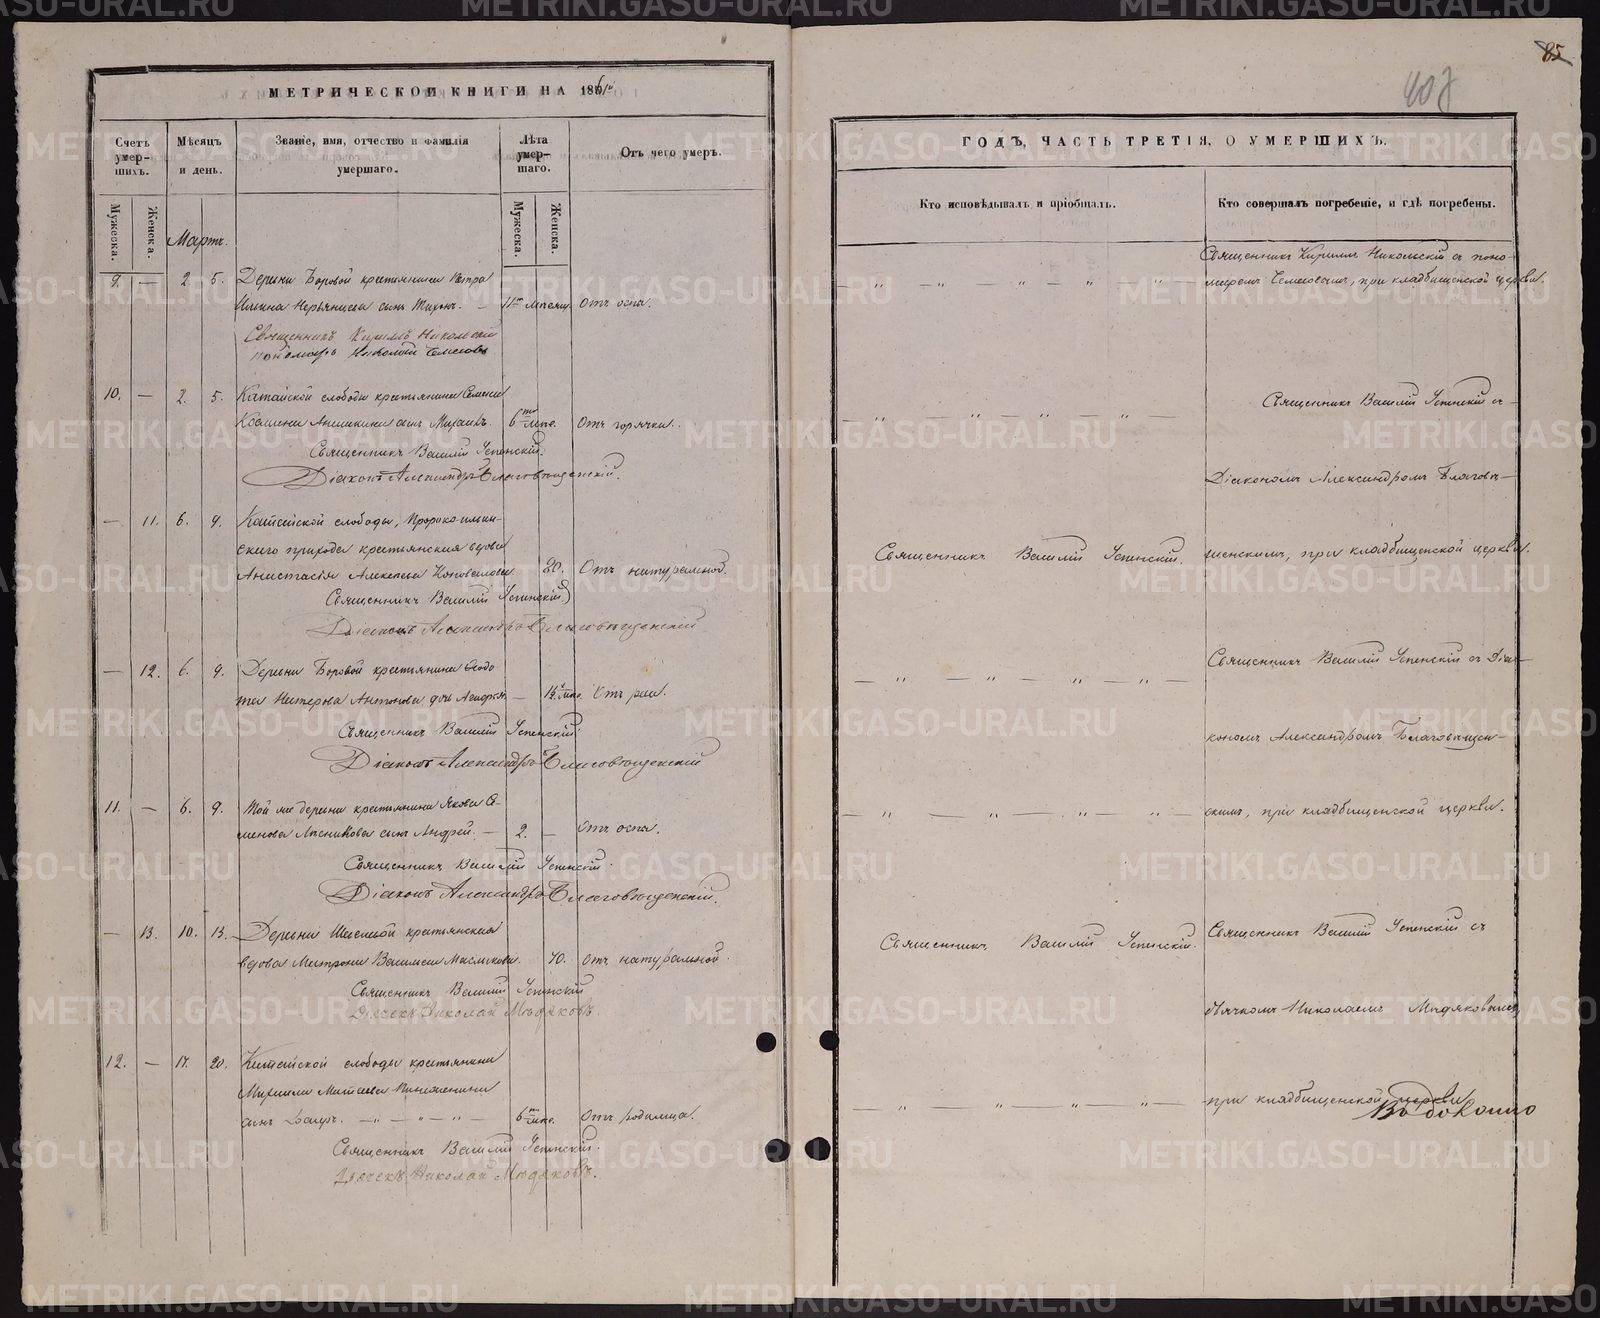 МЕТРИЧЕСКОЙ КНИГИ НА 1861й
Счетъ умер-шихъ.
Мужеска.
Женска.
Мѣсяцъ и день.
Званіе, имя, отчество и фамилія умершаго.
Лѣта умер-шаго.
Мужеска.
Женска.
Отъ чего умеръ.
Мартъ.
9. — 2 5. Деревни Боровой крестьянина Петра
Ильина сынъ Тихонъ. — 11ти мѣсяц. Отъ оспы.
Священникъ Кириллъ Никольскій
пономарь Николай
10. — 2. 5. Катайской слободы крестьянина Семена
сынъ Михаилъ. 6ти мѣс. Отъ горячки.
Священникъ Василій Успенскій.
Діаконъ Александръ Благовѣщенскій.
— 11. 6. 9. Катайской слободы, Пророко-ильин-
скаго прихода крестьянская вдова
Анастасія Алексѣева Коновалова 20. Отъ натуральной.
Священникъ Василій Успенскій
Діаконъ Александръ Благовѣщенскій
— 12. 6. 9. Деревни Боровой крестьянина Ѳедо
та Нестерова Антонова дочь —
Священникъ Василій Успенскій
Діаконъ Александръ Благовѣщенскій
11. — 6. 9. Той же деревни крестьянина Якова Се-
менова сынъ Андрей. — 2. — Отъ оспы.
Священникъ Василій Успенскій.
Діаконъ Александръ Благовѣщенскій.
— 13. 10. 13. Деревни крестьянская
вдова Матрона Васильева 70. отъ натуральной.
Священникъ Василій Успенскій
Дьячекъ Николай Мидяковъ.
12. — 17. 20. Катайской слободы крестьянина
Михаила
сынъ — " — " — " — 6ти мѣс. Отъ родимца.
Священникъ Василій Успенскій.
Дьячекъ Николай Мидяковъ.
85
407
ГОДЪ, ЧАСТЬ ТРЕТІЯ, О УМЕРШИХЪ.
Кто исповѣдывалъ и пріобщалъ.
Кто совершалъ погребеніе, и гдѣ погребены.
Священникъ Кириллъ Никольскій съ поно-
маремъ, при кладбищенской церкви.
Священникъ Василій Успенскій съ
Діакономъ Александромъ Благовѣ-
Священникъ Василій Успенскій. щенскимъ, при кладбищенской церкви.
Священникъ Василій Успенскій съ Діа-
кономъ Александромъ Благовѣщен-
скимъ, при кладбищенской церкви.
Священникъ Василій Успенскій. Священникъ Василій Успенскій съ
дьячкомъ Николаемъ Мидяковымъ,
при кладбищенской церкви.
METRIKI.GASO-URAL.RU